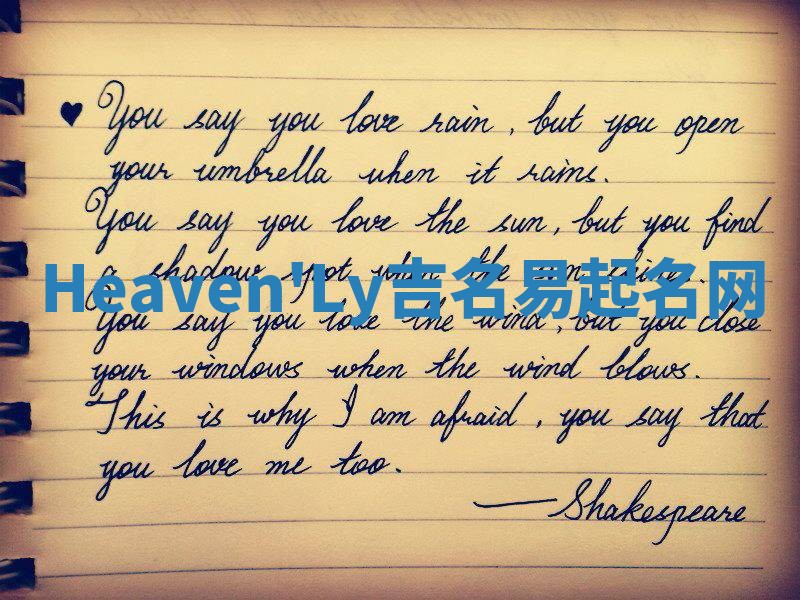 ♥ You say you love rain, but you open
your umbrella when it rains.
You say you love the sun, but you find
a shadow spot when the sun shines.
Heaven'Ly吉名易起名网
You say you love the wind, but you close
your windows when the wind blows.
This is why I am afraid, you say that
you love me too.
—Shakespeare